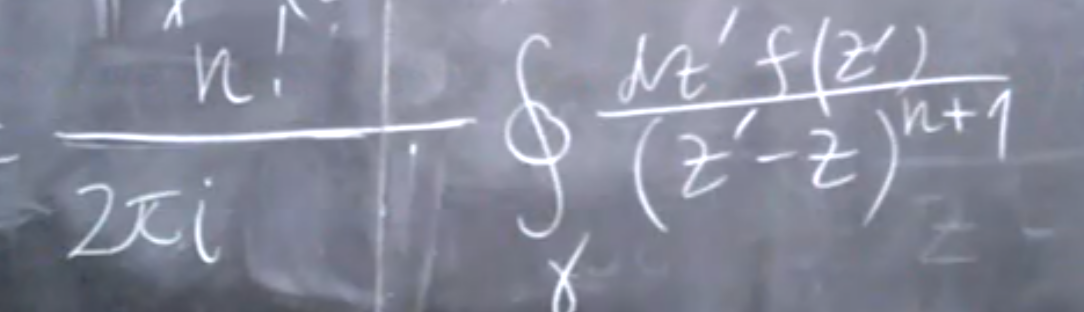 = \frac{n!}{2\pi i} \oint_{\gamma} \frac{dz' f(z')}{(z'-z)^{n+1}}